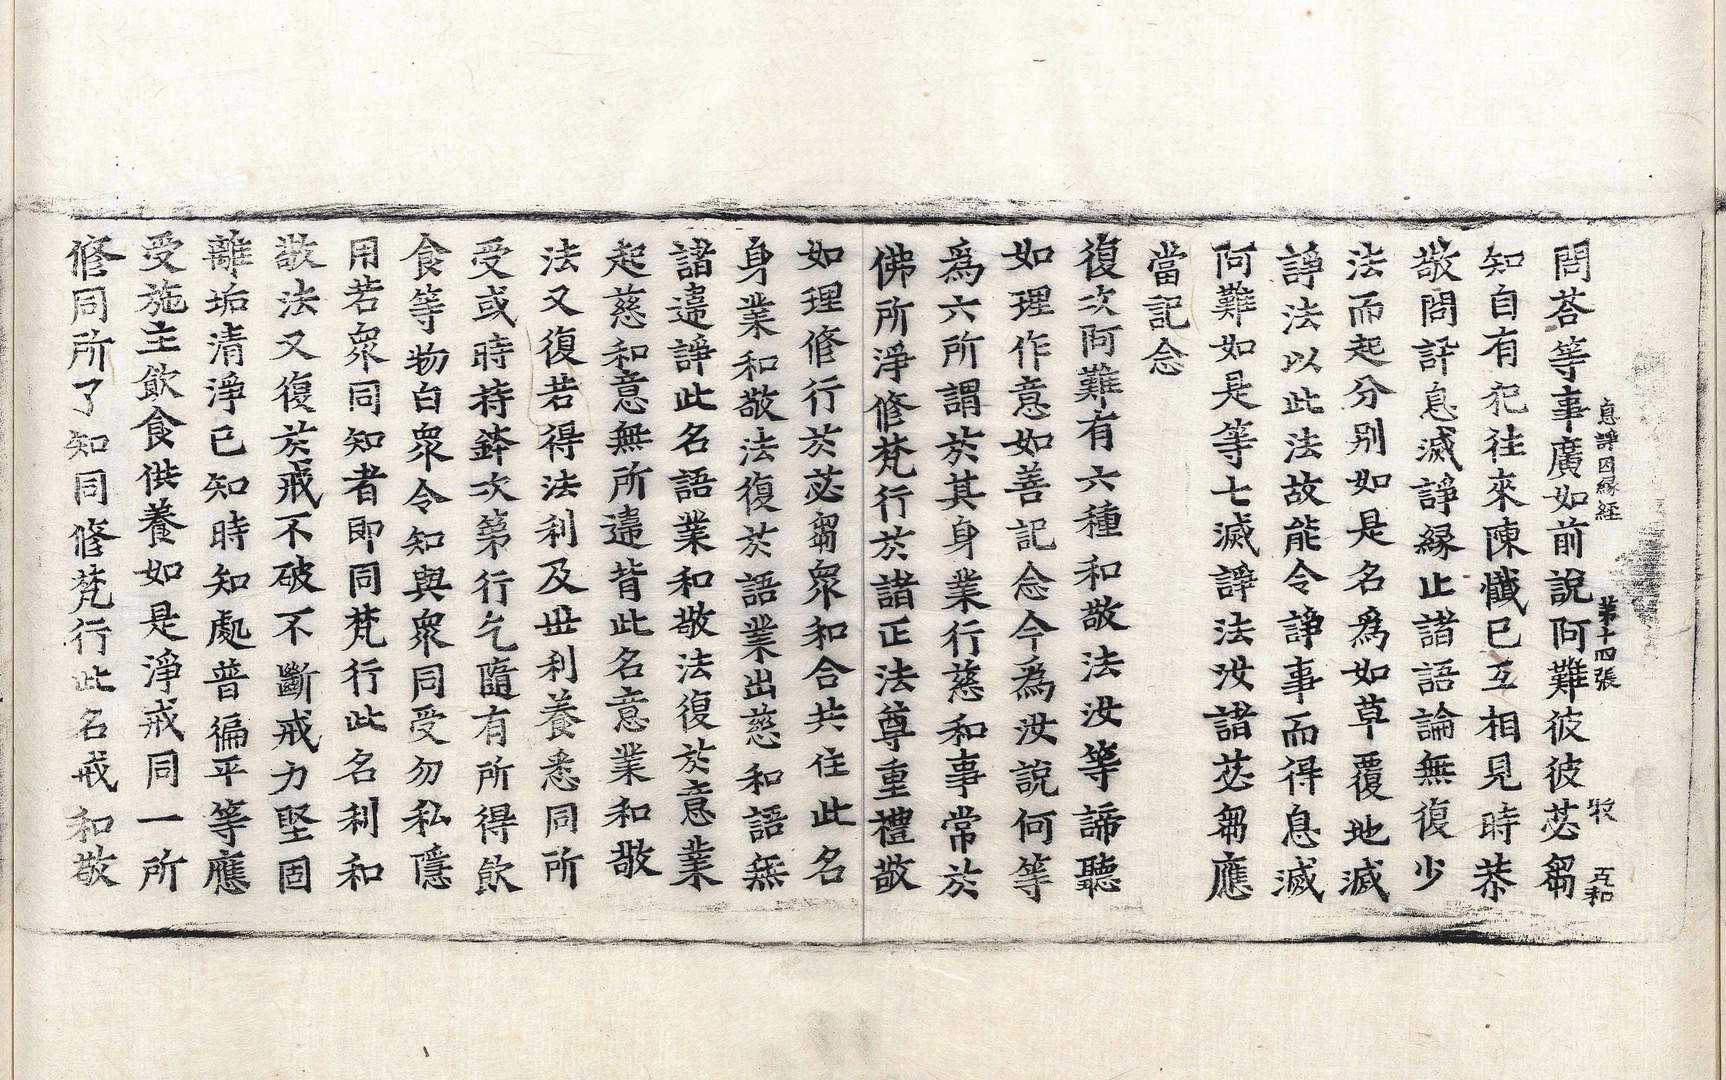 息諍因縁経 第十四張 牧 五和
問荅等事廣如前說阿難彼彼苾芻
知自有犯往來陳懺已互相見時恭
敬問訊息滅諍縁止諸語論無復少
法而起分別如是名爲如草覆地滅
諍法以此法故能令諍事而得息滅
阿難如是等七滅諍法汝諸苾芻應
當記念
復次阿難有六種和敬法汝等諦聽
如理作意如善記念今爲汝說何等
爲六所謂於其身業行慈和事常於
佛所淨修梵行於諸正法尊重禮敬
如理修行於苾芻衆和合共住此名
身業和敬法復於語業出慈和語無
諸違諍此名語業和敬法復於意業
起慈和意無所違背此名意業和敬
法又復若得法利及世利養悉同所
受或時持鉢次第行乞隨有所得飲
食等物白衆令知與衆同受勿私隱
用若衆同知者即同梵行此名利和
敬法又復於戒不破不斷戒力堅固
離垢清淨已知時知處普徧平等應
受施主飲食供養如是淨戒同一所
修同所了知同修梵行此名戒和敬